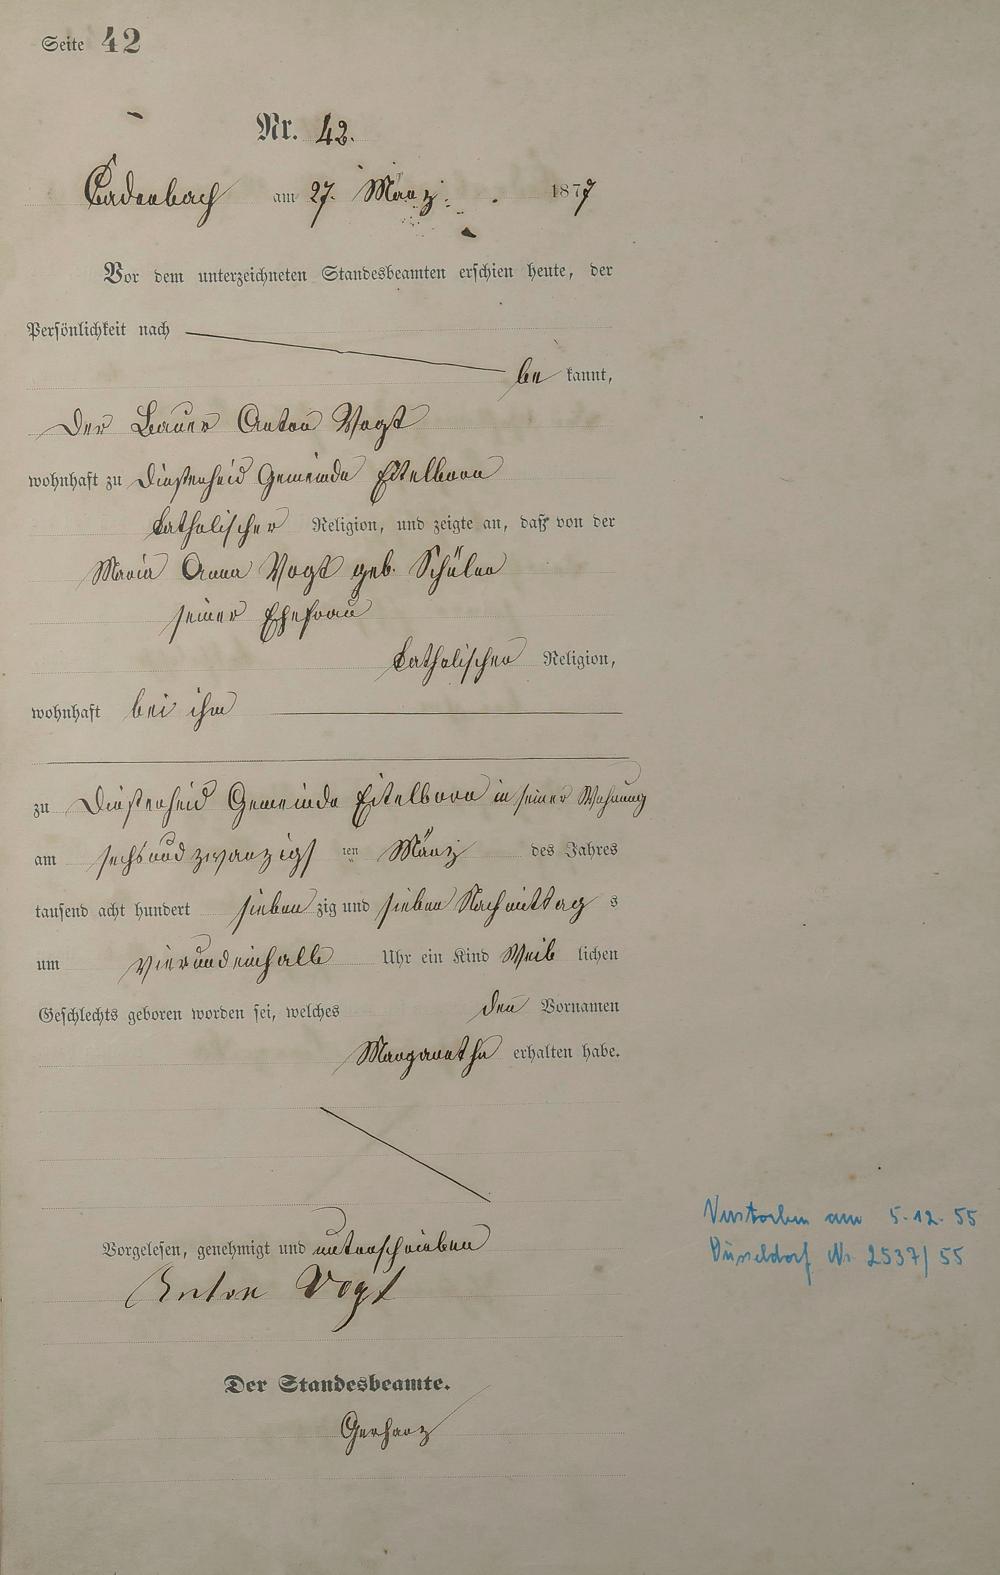 Seite 42
Nr. 42.
Cadenbach am 27. März 1877
Vor dem unterzeichneten Standesbeamten erschien heute, der
Persönlichkeit nach
be kannt,
Der Bauer Anton Vogt
wohnhaft zu Gemeinde Eitelborn
katholischer Religion, und zeigte an, daß von der
Maria Anna Vogt geb. Schüler
seiner Ehefrau
katholischer Religion,
wohnhaft bei ihm
zu Gemeinde Eitelborn in seiner Wohnung
am sechsundzwanzigs ten März des Jahres
tausend acht hundert sieben zig und sieben Nachmittag s
um vierundeinhalb Uhr ein Kind Weib lichen
Geschlechts geboren worden sei, welches den Vornamen
Margaretha erhalten habe.
Vorgelesen, genehmigt und unterschrieben
Anton Vogt
Der Standesbeamte.
Gerharz
Verstorben am 5.12.55
Düsseldorf Nr. 2537/55